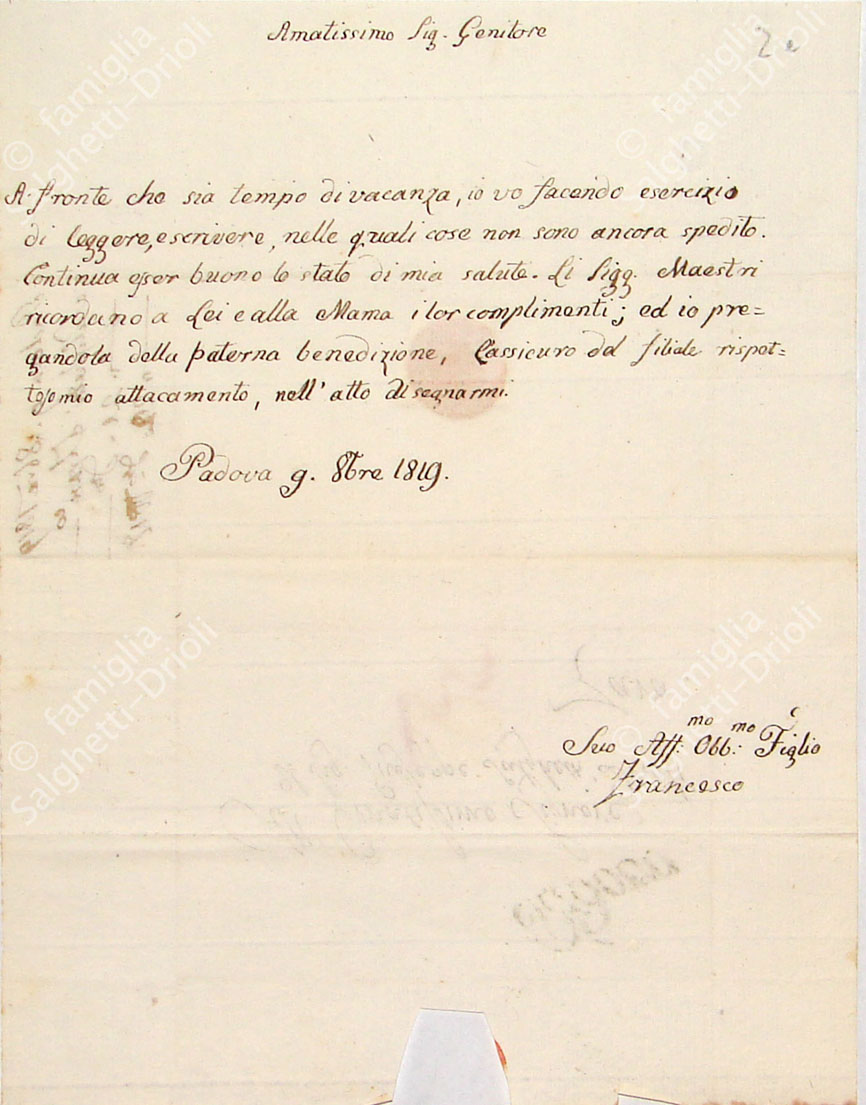 Amatissimo Sig. Genitore
2
A fronte che sia tempo di vacanza, io vo facendo esercizio
di leggere, e scrivere, nelle quali cose non sono ancora spedito.
Continua esser buono lo stato di mia salute. Li Sigg. Maestri
ricordano a Lei e alla Mama i lor complimenti; ed io pre=
gandola della paterna benedizione, L'assicuro del filiale rispet=
toso mio attacamento, nell'atto di segnarmi.
Padova 9. 8bre 1819.
Suo Aff:mo Obb:mo Figlio
Francesco
© famiglia
Salghetti-Drioli
© famiglia
Salghetti-Drioli
© famiglia
Salghetti-Drioli
© famiglia
Salghetti-Drioli